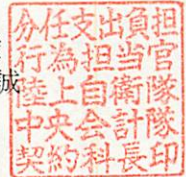 誠
分任支出負担
行為担当官
陸上自衛隊
中央会計隊
契約科長印